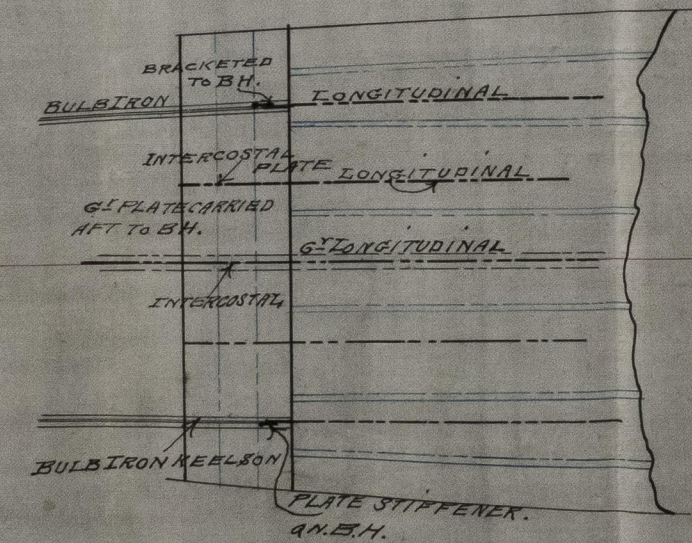 BRACKETED
TO B.H.
BULB IRON
LONGITUDINAL
INTERCOSTAL
PLATE
LONGITUDINAL
Gr PLATE CARRIED
AFT TO B.H.
Gr LONGITUDINAL
INTERCOSTAL
BULB IRON KEELSON
PLATE STIFFENER.
ON.B.H.